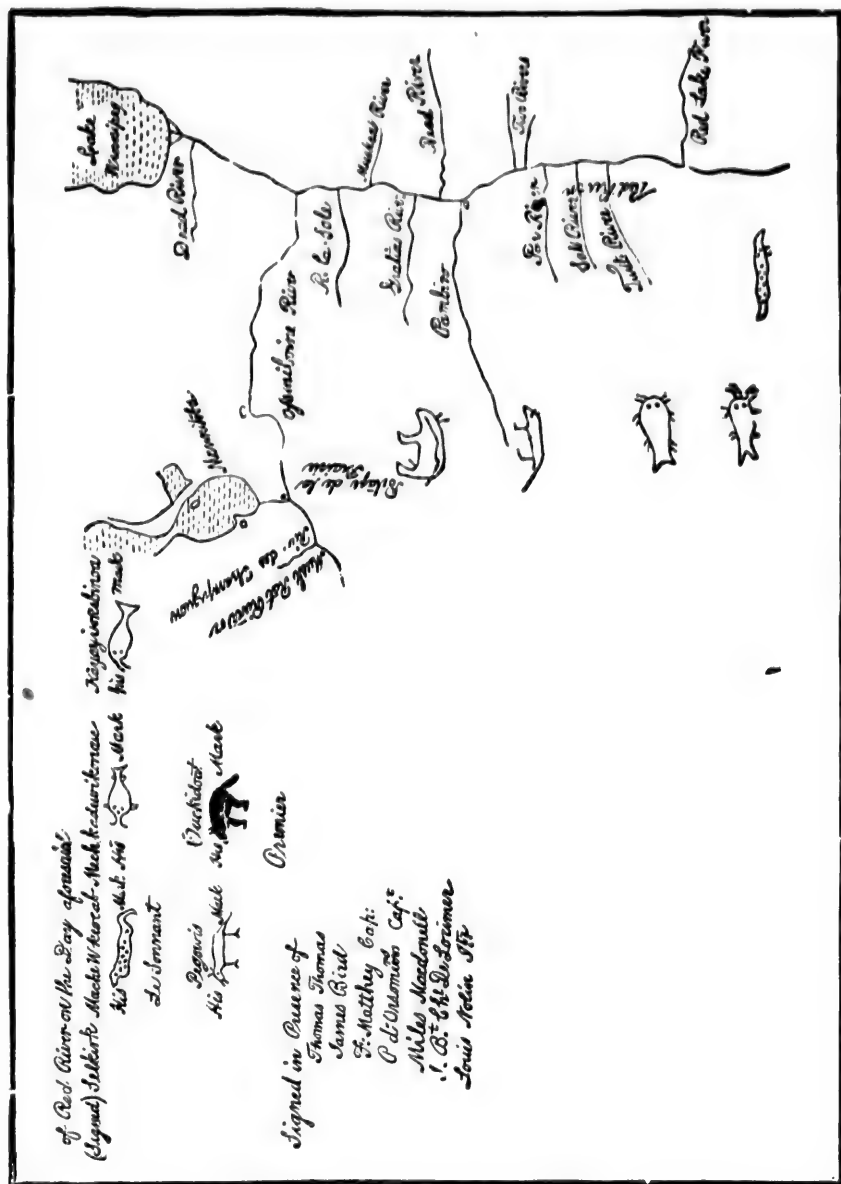 of Red River on the Day aforesaid
(Signed) Selkirk Mache Wheseab Mechkadewikonaie
His Mark His Mark
Le Sonnant
Kayajieskebinoa
his mark
Pegowis
His Mark
Ouckidoat
His Mark
Premier
Signed in Presence of
Thomas Thomas
James Bird
F: Matthey Cap:
P d'Orsonnens Capt
Miles Macdonell
J. Bte Chs De Lorimer
Louis Nolin Itr
Lake Winnipeg
Dead River
Assiniboine River
R. la Sole
Musket River
Gratias River
Road River
Pambino
Two Rivers
Par River
Salt River
Turtle River
Red River
Red Lake River
Portage de la
Prairie
Musk Rat River or
Riv. des Champignons